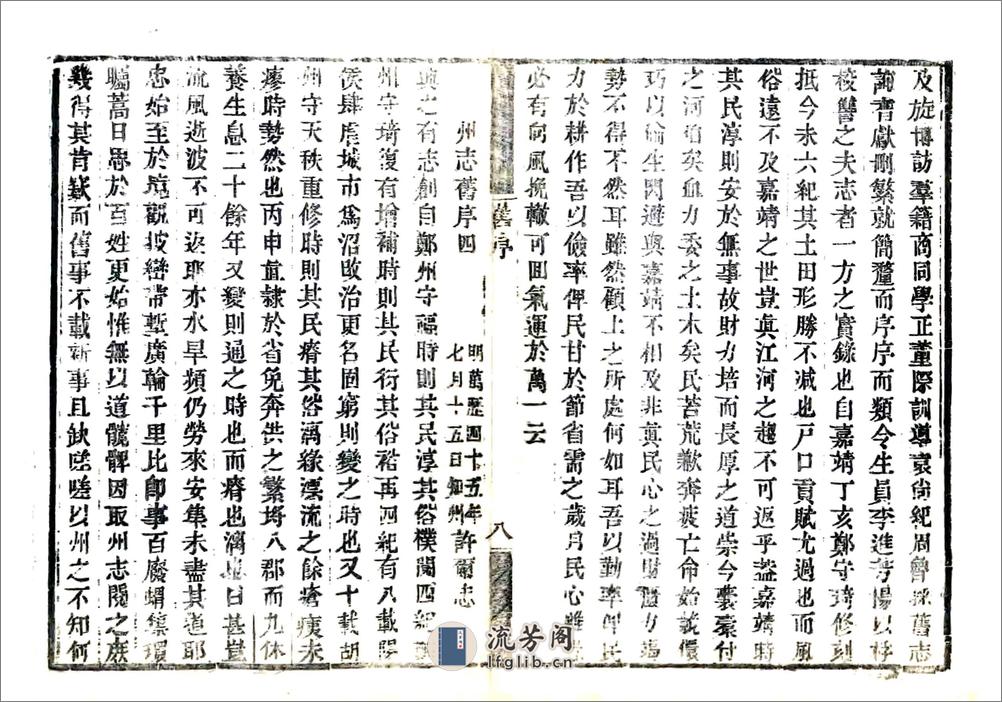 及旋博訪羣籍商同學正董際訓導袁尙紀周魯採舊志
詢耆獻刪繁就簡釐而序序而類令生員李進芳楊以梓
校讐之夫志者一方之實錄也自嘉靖丁亥鄭守琦修刻
抵今未六紀其土田形勝不减也戸口貢賦尤過也而風
俗遠不及嘉靖之世豈眞江河之趨不可返乎盖嘉靖時
其民淳則安於無事故財力培而長厚之道崇今囊橐付
之河伯矣血力委之土木矣民苦荒歉奔疲亡命始詭儇
巧以偷生閃避與嘉靖不相及非眞民心之過財匱力
勢不得不然耳雖然顧上之所處何如耳吾以勤率俾民
力於耕作吾以儉率俾民甘於節省需之歲月民心雖
必有向風挽轍可囬氣運於萬一云
舊序
八
州志舊序四
明萬歷四十五年七月十五日知州許爾忠
輿之有志創自鄭州守福時則其民淳其俗樸閱四紀
州守琦復有增補時則其民衍其俗裕再四紀有八載陽
侯肆虐城市爲沼改治更名囿窮則變之時也又十載胡
州守天秩重修時則其民瘠其俗漓緣漂流之餘瘡痍未
瘳時勢然也丙申直隸於省免奔供之繁埓八郡而九休
養生息二十餘年又變則通之時也而瘠也漓也日甚豈
流風逝波不可返耶亦水旱頻仍勞來安集未盡其道耶
忠始至於境觀披巒帶塹廣輪千里比卽事百廢蝟集環
矚蒿目思於百姓更始惟無以道髖髀因取州志閱之庶
幾得其肯綮而舊事不載新事且缺嗟嗟以州之不知何
流芳阁
lfglib.cn